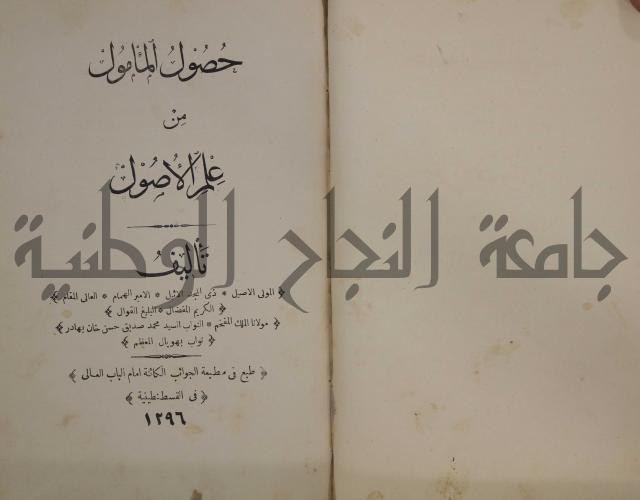 حُصُولُ المَأمُولْ
مِنْ
عِلْمِ الأُصُولْ
تَأْلِيفُ
﴿ المولى الاصيل * ذى المجد الاثيل * الامير الهمام * العالى المقام ﴾
﴿ الكريم المفضال * البليغ القوال ﴾
﴿ مولانا الملك المفخم * النواب السيد محمد صديق حسن خان بهادر ﴾
﴿ نواب بهوپال المعظم ﴾
﴿ طبع فى مطبعة الجوائب الكائنة امام الباب العالى ﴾
﴿ فى القسطنطينية ﴾
١٢٩٦
جامعة النجاح الوطنية